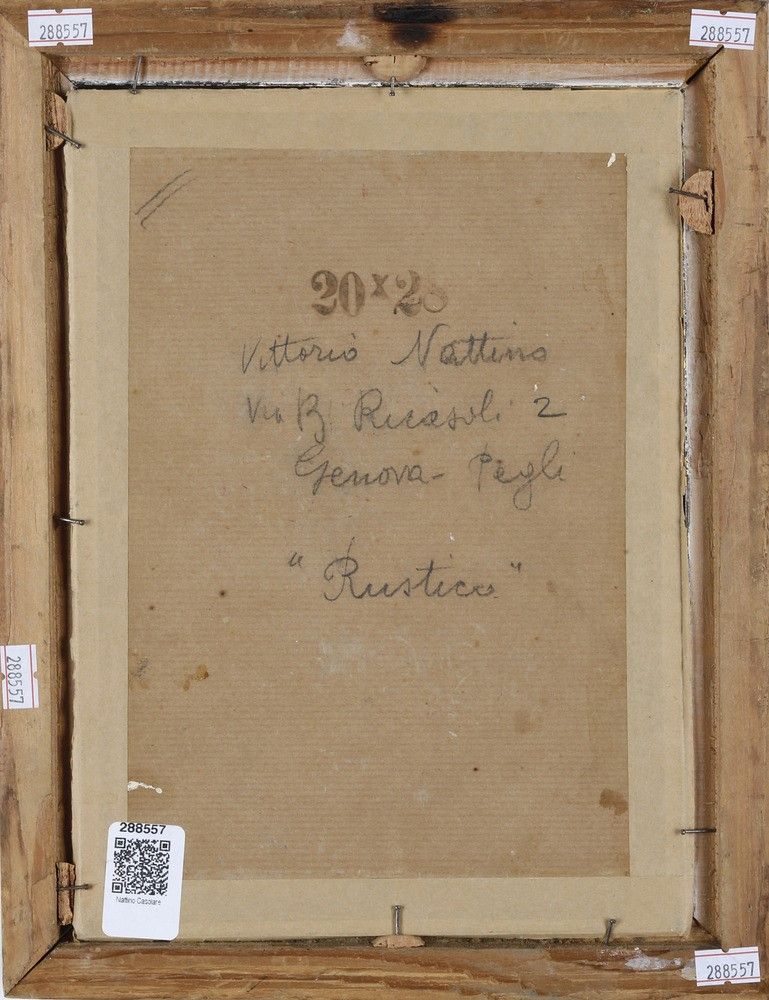 288557
288557
20x28
Vittorio Nattino
Via B Ricasoli 2
Genova - Pegli
"Rustico"
288557
288557
Nattino Casolare
288557